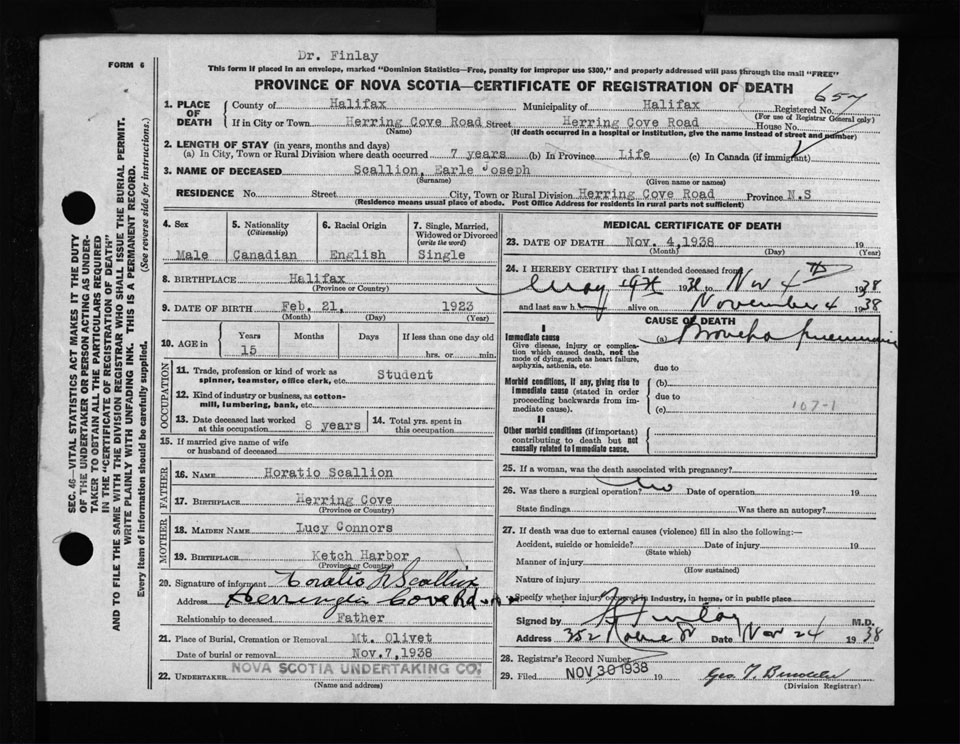 Dr. Finlay
FORM 6
This form if placed in an envelope, marked "Dominion Statistics—Free, penalty for improper use $300," and properly addressed will pass through the mail "FREE"
PROVINCE OF NOVA SCOTIA—CERTIFICATE OF REGISTRATION OF DEATH
657
1. PLACE OF DEATH
County of Halifax Municipality of Halifax Registered No.
(For use of Registrar General only)
If in City or Town Herring Cove Road Street Herring Cove Road House No.
(Name) (If death occurred in a hospital or institution, give the name instead of street and number)
2. LENGTH OF STAY (in years, months and days)
(a) In City, Town or Rural Division where death occurred 7 years (b) In Province Life (c) In Canada (if immigrant)
3. NAME OF DECEASED Scallion, Earle Joseph
(Surname) (Given name or names)
RESIDENCE No. Street City, Town or Rural Division Herring Cove Road Province N.S
(Residence means usual place of abode. Post Office Address for residents in rural parts not sufficient)
4. Sex 5. Nationality (Citizenship) 6. Racial Origin 7. Single, Married, Widowed or Divorced (write the word)
Male Canadian English Single
8. BIRTHPLACE Halifax
(Province or Country)
9. DATE OF BIRTH Feb. 21, 1923
(Month) (Day) (Year)
10. AGE in Years Months Days If less than one day old
15 hrs. or min.
OCCUPATION
11. Trade, profession or kind of work as spinner, teamster, office clerk, etc. Student
12. Kind of industry or business, as cotton-mill, lumbering, bank, etc.
13. Date deceased last worked at this occupation 8 years 14. Total yrs. spent in this occupation
15. If married give name of wife or husband of deceased
FATHER
16. NAME Horatio Scallion
17. BIRTHPLACE Herring Cove
(Province or Country)
MOTHER
18. MAIDEN NAME Lucy Connors
19. BIRTHPLACE Ketch Harbor
(Province or Country)
20. Signature of informant Horatio Scallion
Address Herring Cove Rd
Relationship to deceased Father
21. Place of Burial, Cremation or Removal Mt. Olivet
Date of burial or removal Nov.7,1938
22. UNDERTAKER NOVA SCOTIA UNDERTAKING CO.
(Name and address)
MEDICAL CERTIFICATE OF DEATH
23. DATE OF DEATH Nov. 4,1938 19
(Month) (Day) (Year)
24. I HEREBY CERTIFY that I attended deceased from
May 1938 to Nov 4th 1938
and last saw h alive on November 4 1938
CAUSE OF DEATH
I
Immediate cause
Give disease, injury or complication which caused death, not the mode of dying, such as heart failure, asphyxia, asthenia, etc.
(a) Broncho pneumonia
due to
Morbid conditions, if any, giving rise to immediate cause (stated in order proceeding backwards from immediate cause).
(b)
due to
(c) 107-1
II
Other morbid conditions (if important) contributing to death but not causally related to immediate cause.
25. If a woman, was the death associated with pregnancy?
26. Was there a surgical operation? no Date of operation 19
State findings Was there an autopsy?
27. If death was due to external causes (violence) fill in also the following:—
Accident, suicide or homicide? Date of injury 19
(State which)
Manner of injury
(How sustained)
Nature of injury
Specify whether injury occurred in industry, in home, or in public place
Signed by Finlay M.D.
Address 352 St Date Nov 24 1938
28. Registrar's Record Number
29. Filed NOV 30 1938 19 Geo.
(Division Registrar)
SEC. 46—VITAL STATISTICS ACT MAKES IT THE DUTY
OF THE UNDERTAKER OR PERSON ACTING AS UNDER-
TAKER TO OBTAIN ALL THE PARTICULARS REQUIRED
IN THE "CERTIFICATE OF REGISTRATION OF DEATH"
AND TO FILE THE SAME WITH THE DIVISION REGISTRAR WHO SHALL ISSUE THE BURIAL PERMIT.
WRITE PLAINLY WITH UNFADING INK. THIS IS A PERMANENT RECORD.
Every item of information should be carefully supplied. (See reverse side for instructions.)